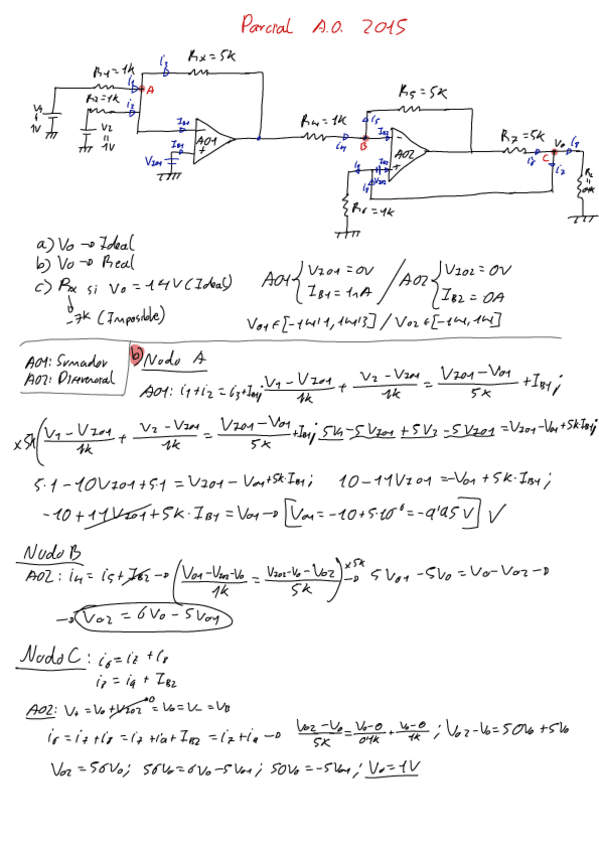 Parcial A.O. 2015
Rx=5k
i3
R1=1k
i1
A
R2=1k
i2
V1
1V
V2
1V
IB1
IB1
VZ01
A01
R4=1k
i4
B
R5=5k
i5
IB2
IB2
A02
R7=5k
i6
C
V0
i8
i7
R6=1k
a) V0 → Ideal
b) V0 → Real
c) Rx si V0 = 14V (Ideal)
-7k (Imposible)
A01 { VZ01 = 0V / A02 { VZ02 = 0V
IB1 = 1nA IB2 = 0A
V01 ∈ [-14'1, 14'13] / V02 ∈ [-14, 14]
A01: Sumador
A02: Diferencial
b) Nodo A
A01: i1+i2 = i3+IB1; (V1-VZ01)/1k + (V2-VZ01)/1k = (VZ01-V01)/5k + IB1;
x5k ( (V1-VZ01)/1k + (V2-VZ01)/1k = (VZ01-V01)/5k + IB1; 5V1-5VZ01+5V2-5VZ01 = VZ01-V01+5k·IB1
5·1-10VZ01+5·1 = VZ01-V01+5k·IB1; 10-11VZ01 = -V01+5k·IB1;
-10+11VZ01+5k·IB1 = V01 → [V01 = -10+5·10⁻⁶ = -9'95V] ✓
Nodo B
A02: i4 = i5+IB2 → ( (V01-VZ02-V0)/1k = (VZ02-V0-V02)/5k ) x5k → 5V01-5V0 = V0-V02 →
→ V02 = 6V0-5V01
Nodo C: i6 = i7+i8
i8 = i9+IB2
A02: V+ = V0+VZ02 = V0 = V- = VB
i6 = i7+i8 = i7+i9+IB2 = i7+i9 → (V02-V0)/5k = (V0-0)/0'1k + (V0-0)/1k; V02-V0 = 50V0+5V0
V02 = 56V0; 56V0 = 6V0-5V01; 50V0 = -5V01; V0 = 1V